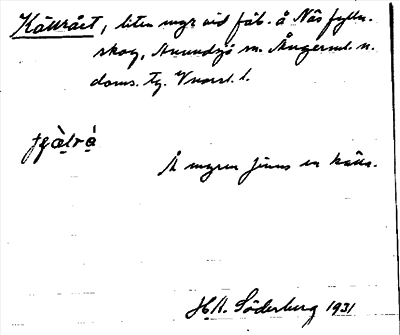 Källrået, liten myr vid fäb. å Näs fjäll-
skog, Anundsjö sn. Ångerml. n.
doms. Tg.
Å myren finns en källa.
H.A. Söderberg 1931